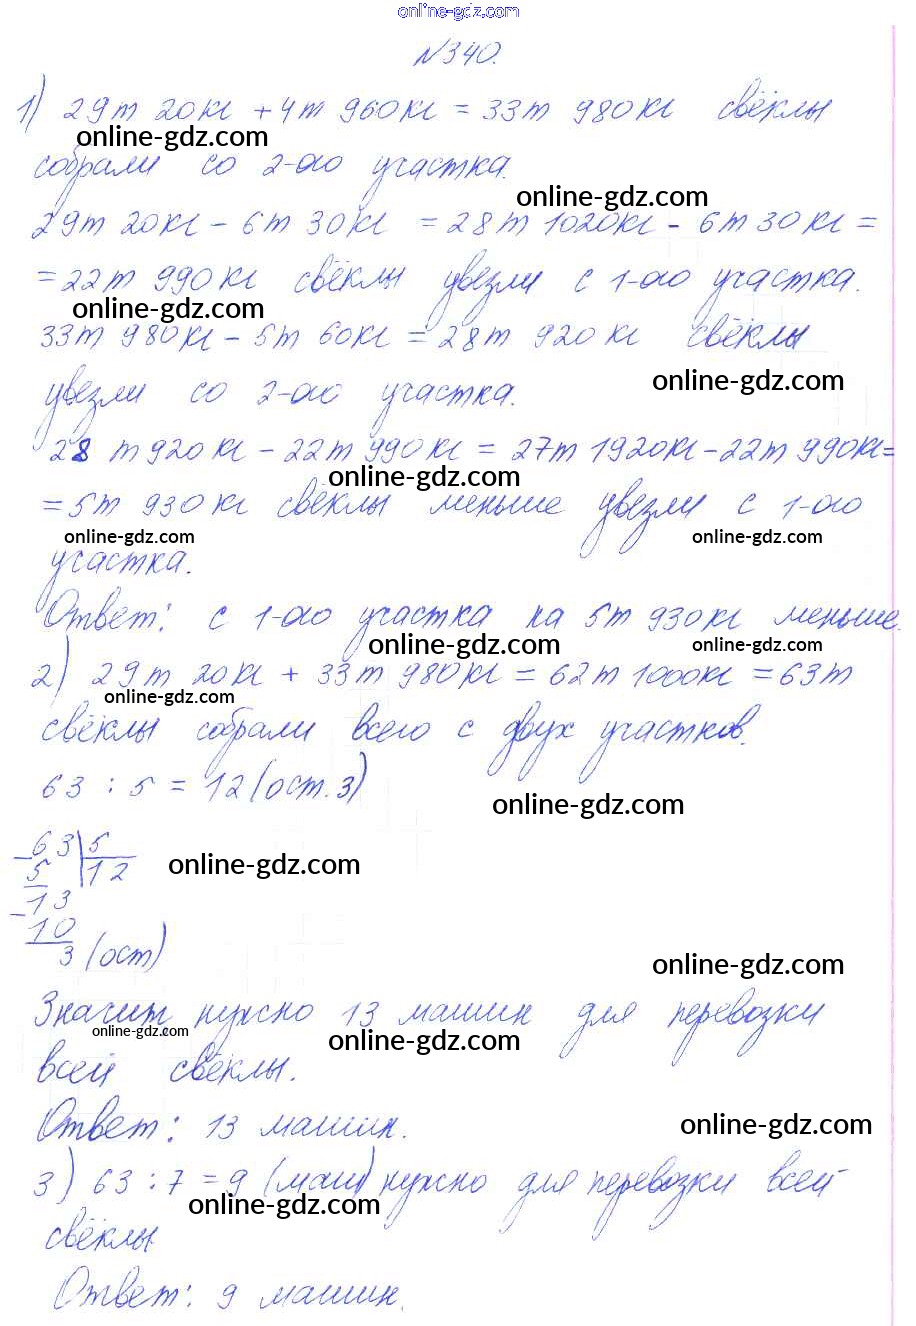 online-gdz.com
№340.
1) 29т 20кг + 4т 960кг = 33т 980кг свёклы
online-gdz.com
собрали со 2-ого участка.
online-gdz.com
29т 20кг - 6т 30кг = 28т 1020кг - 6т 30кг =
= 22т 990кг свёклы увезли с 1-ого участка.
online-gdz.com
33т 980кг - 5т 60кг = 28т 920кг свёклы
online-gdz.com
увезли со 2-ого участка.
28 т 920кг - 22т 990кг = 27т 1920кг - 22т 990кг =
online-gdz.com
= 5т 930кг свёклы меньше увезли с 1-ого
online-gdz.com online-gdz.com
участка.
Ответ: с 1-ого участка на 5т 930кг меньше.
online-gdz.com online-gdz.com
2) 29т 20кг + 33т 980кг = 62т 1000кг = 63т
online-gdz.com
свёклы собрали всего с двух участков.
63 : 5 = 12 (ост. 3)
online-gdz.com
- 63 | 5
5 12
online-gdz.com
- 13
10
3 (ост)
online-gdz.com
Значит нужно 13 машин для перевозки
online-gdz.com online-gdz.com
всей свёклы.
Ответ: 13 машин.
online-gdz.com
3) 63 : 7 = 9 (маш) нужно для перевозки всей
online-gdz.com
свёклы
Ответ: 9 машин.